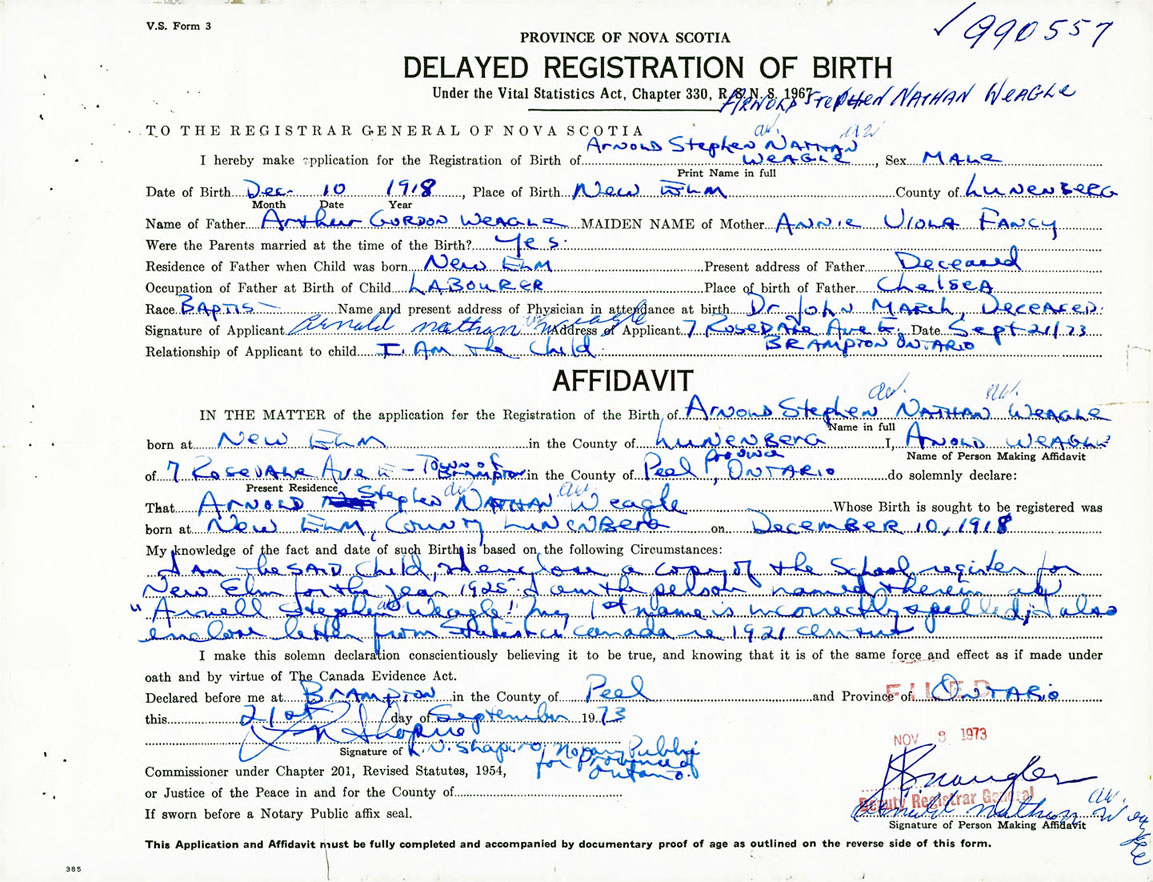 V.S. Form 3
990557
PROVINCE OF NOVA SCOTIA
DELAYED REGISTRATION OF BIRTH
Under the Vital Statistics Act, Chapter 330, R.S.N.S. 1967
ARNOLD STEPHEN NATHAN WEAGLE
TO THE REGISTRAR GENERAL OF NOVA SCOTIA
aw. aw
I hereby make application for the Registration of Birth of ARNOLD Stephen NATHAN WEAGLE, Sex MALE
Print Name in full
Date of Birth Dec. 10 1918, Place of Birth New ELM County of LUNENBERG
Month Date Year
Name of Father Arthur GORDON WEAGLE MAIDEN NAME of Mother ANNIE VIOLA FANCY
Were the Parents married at the time of the Birth? Yes.
Residence of Father when Child was born New ELM Present address of Father Deceased
Occupation of Father at Birth of Child LABOURER Place of birth of Father CheLSEA
Race BAPTIST Name and present address of Physician in attendance at birth Dr JOHN MARCH, DECEASED.
Signature of Applicant Arnold nathan weagle Address of Applicant 7 ROSEDALE Ave E, Date Sept 21/73
BRAMPTON ONTARIO
Relationship of Applicant to child I Am the Child.
AFFIDAVIT
aw. aw.
IN THE MATTER of the application for the Registration of the Birth of ARNOLD Stephen NATHAN WEAGLE
Name in full
born at New ELM in the County of LUNENBERG I, ARNOLD WEAGLE
Name of Person Making Affidavit
of 7 ROSEDALE Ave E - Town of BRAMPTON in the County of Peel, Province ONTARIO do solemnly declare:
Present Residence
aw aw
That ARNOLD Stephen NATHAN Weagle Whose Birth is sought to be registered was
born at New ELM, COUNTY LUNENBERG on DECEMBER 10, 1918
My knowledge of the fact and date of such Birth is based on the following Circumstances:
I am the SAID Child, I enclose a copy of the School register for
New Elm for the year 1925. I am the person named therein as
"Arnell Stephen Weagle". My 1st name is incorrectly spelled, I also
enclose letter from Statistics Canada re 1921 census
I make this solemn declaration conscientiously believing it to be true, and knowing that it is of the same force and effect as if made under
oath and by virtue of The Canada Evidence Act.
Declared before me at BRAMPTON in the County of Peel and Province of ONTARIO
FILED
this 21st day of September 1973
NOV 8 1973
Signature of R.N. Shapiro, Notary Public
for Province of
Ontario.
Commissioner under Chapter 201, Revised Statutes, 1954,
or Justice of the Peace in and for the County of
Deputy Registrar General
If sworn before a Notary Public affix seal.
Arnold nathan aw. Weagle
Signature of Person Making Affidavit
This Application and Affidavit must be fully completed and accompanied by documentary proof of age as outlined on the reverse side of this form.
385